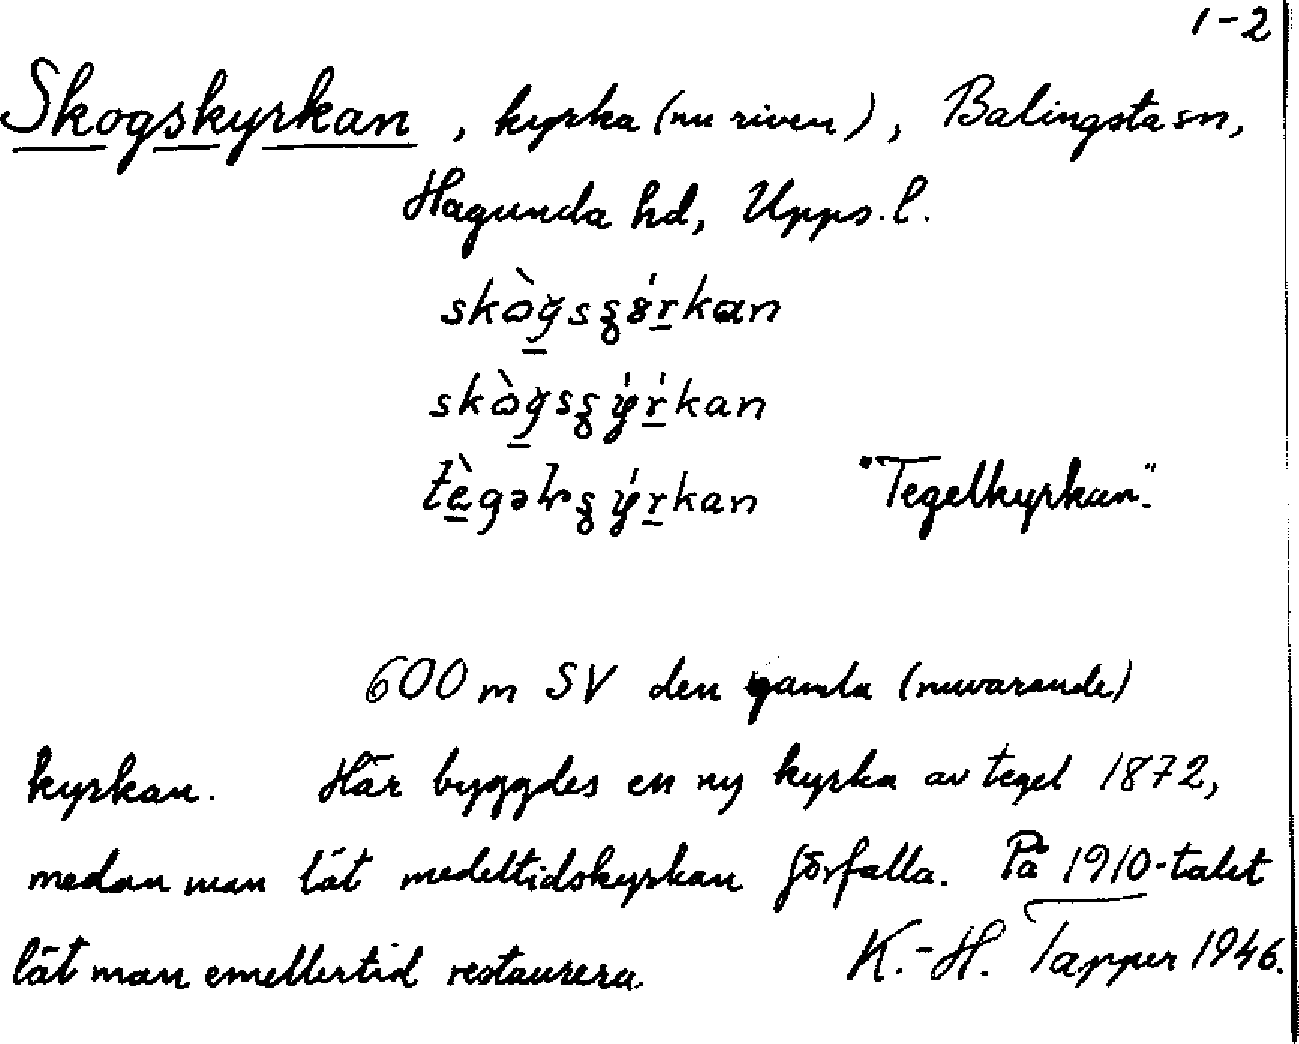 1-2
Skogskyrkan, kyrka (nu riven), Balingsta sn,
Hagunda hd, Upps. l.
"Tegelkyrkan".
600 m SV den gamla (nuvarande)
kyrkan. Här byggdes en ny kyrka av tegel 1872,
medan man lät medeltidskyrkan förfalla. På 1910-talet
lät man emellertid restaurera
K.-H. Tapper 1946.